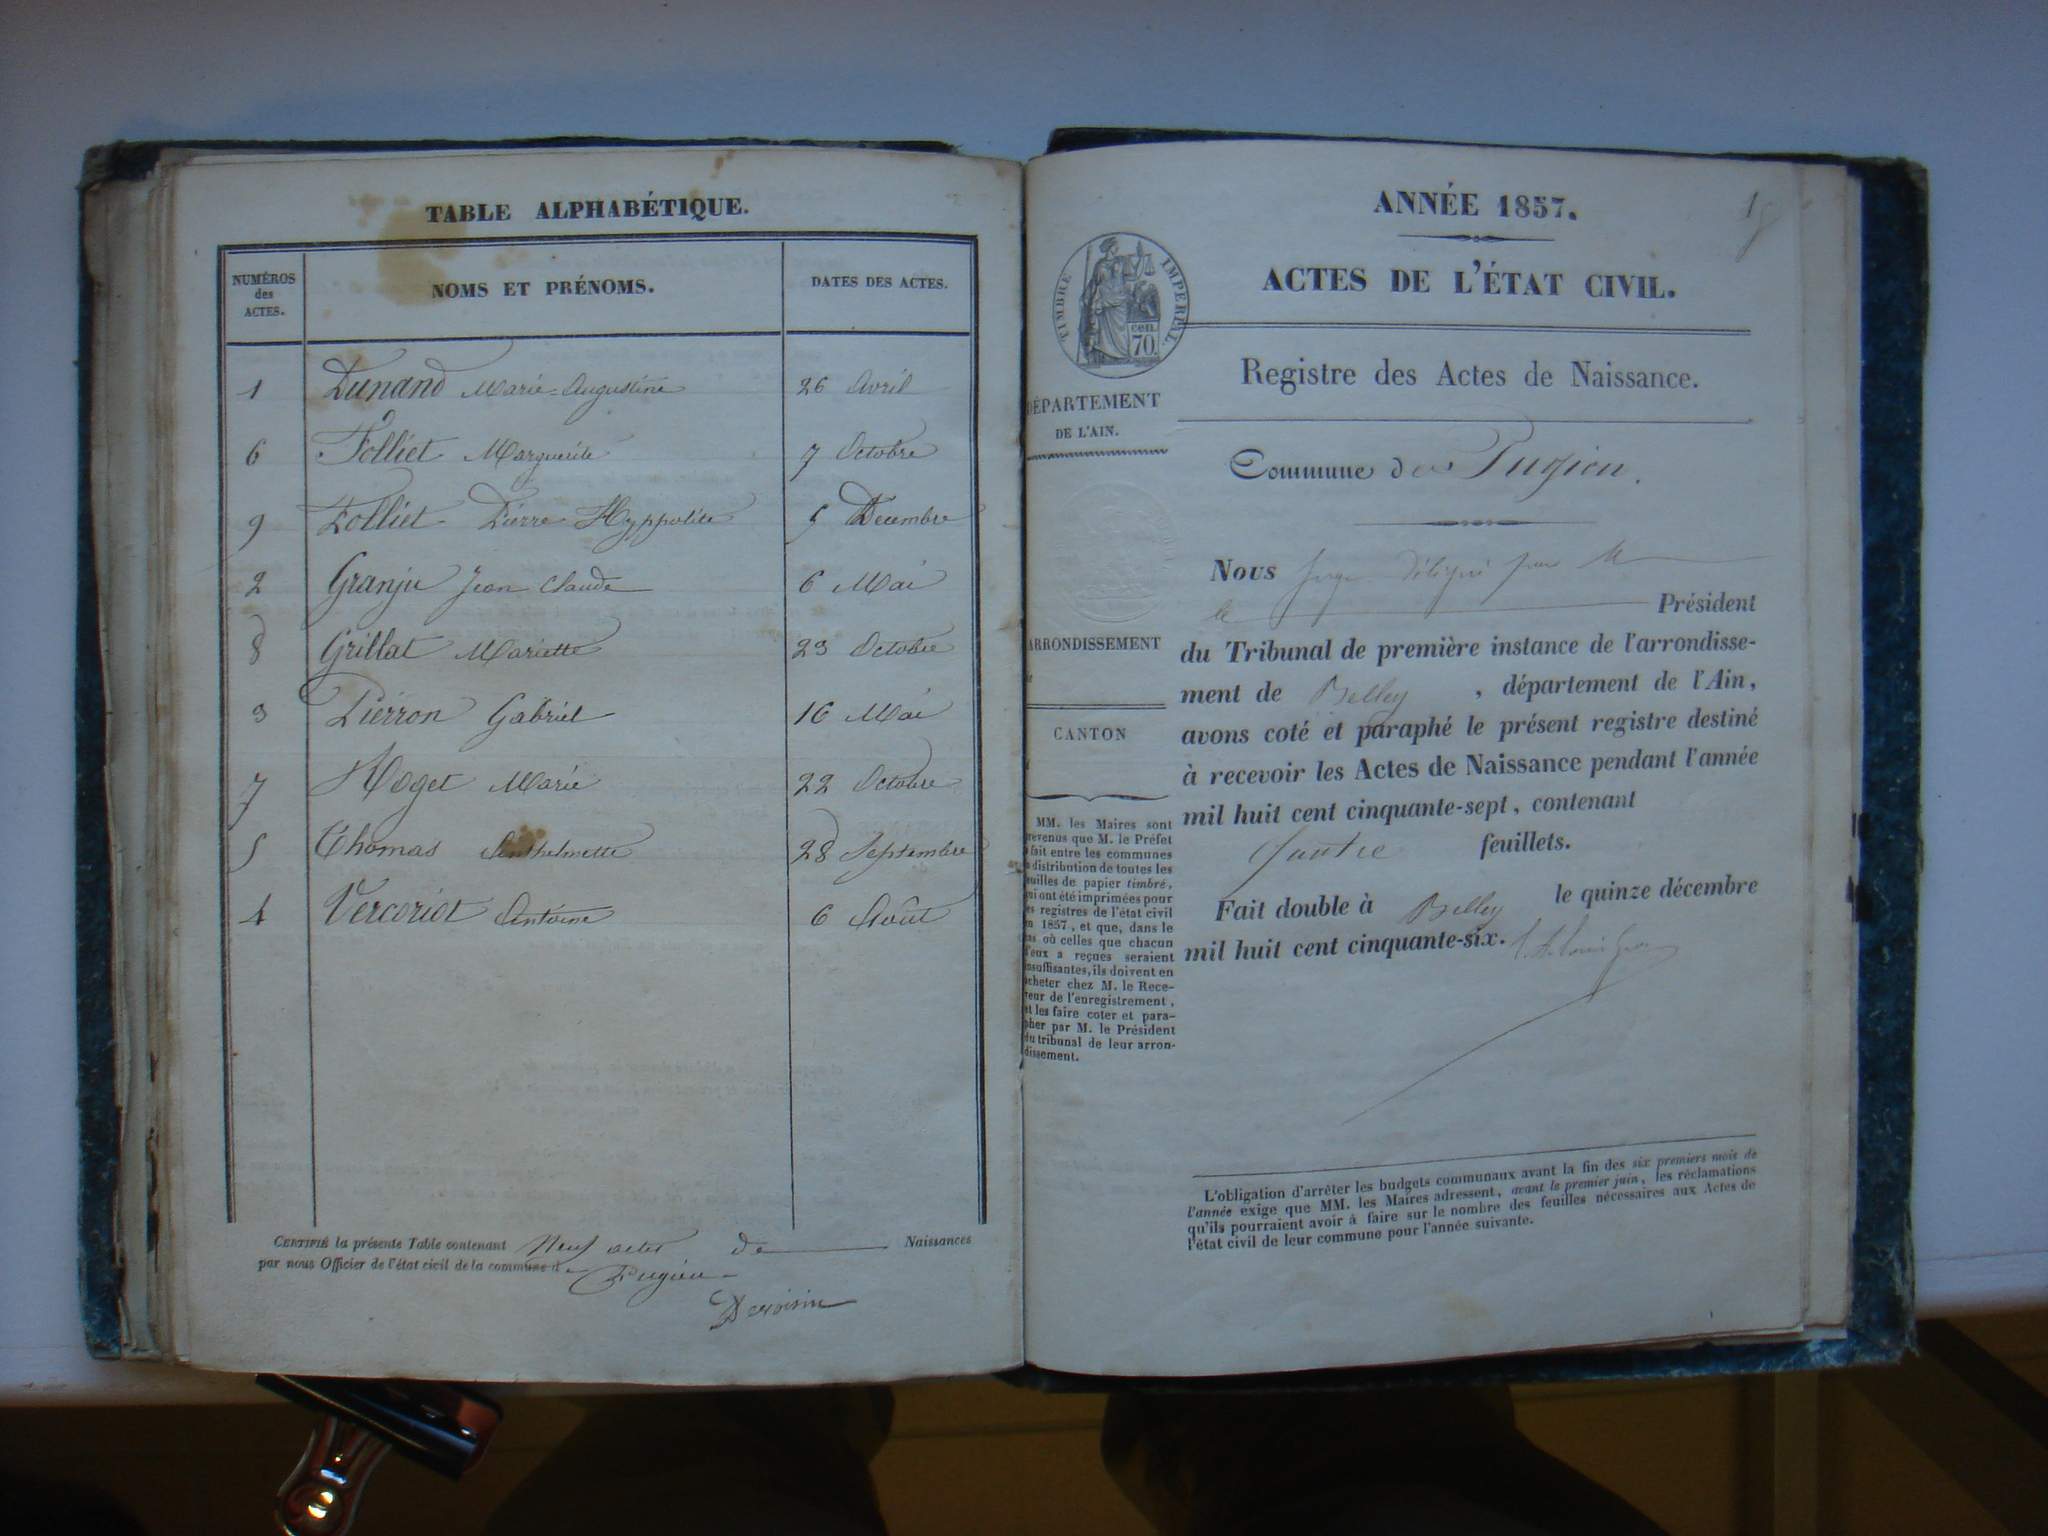 TABLE ALPHABÉTIQUE.
NUMÉROS des ACTES. NOMS ET PRÉNOMS. DATES DES ACTES.
1 Dunand Marie-Augustine 26 Avril
6 Folliet Marguerite 7 Octobre
9 Folliet Pierre Hyppolite 5 Décembre
2 Granju Jean Claude 6 Mai
8 Grillat Mariette 23 Octobre
3 Pierron Gabriel 16 Mai
7 Roget Marie 22 Octobre
5 Thomas Anthelmette 28 Septembre
4 Vercoriot Antoine 6 Août
CERTIFIÉ la présente Table contenant Neuf actes de Naissances
par nous Officier de l'état civil de la commune d Pugieu
Devoisin
ANNÉE 1857.
1
ACTES DE L'ÉTAT CIVIL.
TIMBRE IMPÉRIAL.
cen.
70.
Registre des Actes de Naissance.
DÉPARTEMENT
DE L'AIN.
Commune de Pugieu.
ARRONDISSEMENT
CANTON
MM. les Maires sont
prévenus que M. le Préfet
a fait entre les communes
la distribution de toutes les
feuilles de papier timbré,
qui ont été imprimées pour
les registres de l'état civil
en 1857, et que, dans le
cas où celles que chacun
d'eux a reçues seraient
insuffisantes, ils doivent en
acheter chez M. le Rece-
veur de l'enregistrement,
et les faire coter et para-
pher par M. le Président
du tribunal de leur arron-
dissement.
Nous Juge délégué par M
le Président
du Tribunal de première instance de l'arrondisse-
ment de Belley, département de l'Ain,
avons coté et paraphé le présent registre destiné
à recevoir les Actes de Naissance pendant l'année
mil huit cent cinquante-sept, contenant
Quatre feuillets.
Fait double à Belley le quinze décembre
mil huit cent cinquante-six.
L'obligation d'arrêter les budgets communaux avant la fin des six premiers mois de
l'année exige que MM. les Maires adressent, avant le premier juin, les réclamations
qu'ils pourraient avoir à faire sur le nombre des feuilles nécessaires aux Actes de
l'état civil de leur commune pour l'année suivante.